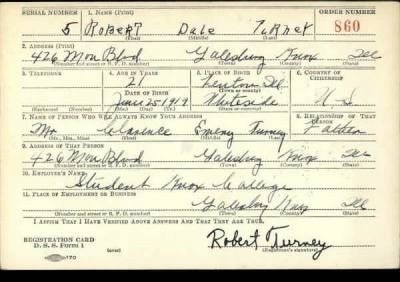 SERIAL NUMBER 1. NAME (Print) ORDER NUMBER
5 ROBERT Dale Turney 860
(First) (Middle) (Last)
2. ADDRESS (Print)
426 Mon Blvd Galesburg Knox Ill
(Number and street or R. F. D. number) (Town) (County) (State)
3. TELEPHONE 4. AGE IN YEARS 5. PLACE OF BIRTH 6. COUNTRY OF CITIZENSHIP
21 Ill.
DATE OF BIRTH (Town or county)
June 25 1919 Whiteside U.S.
(Exchange) (Number) (Mo.) (Day) (Yr.) (State or country)
7. NAME OF PERSON WHO WILL ALWAYS KNOW YOUR ADDRESS 8. RELATIONSHIP OF THAT PERSON
Mr. Clarence Emery Turney Father
(Mr., Mrs., Miss) (First) (Middle) (Last)
9. ADDRESS OF THAT PERSON
426 Mon Blvd Galesburg Knox Ill
(Number and street or R. F. D. number) (Town) (County) (State)
10. EMPLOYER'S NAME
Student Knox College
11. PLACE OF EMPLOYMENT OR BUSINESS
Galesburg Knox Ill
(Number and street or R. F. D. number) (Town) (County) (State)
I AFFIRM THAT I HAVE VERIFIED ABOVE ANSWERS AND THAT THEY ARE TRUE.
REGISTRATION CARD
D. S. S. Form 1 (over) Robert Turney
(Registrant's signature)